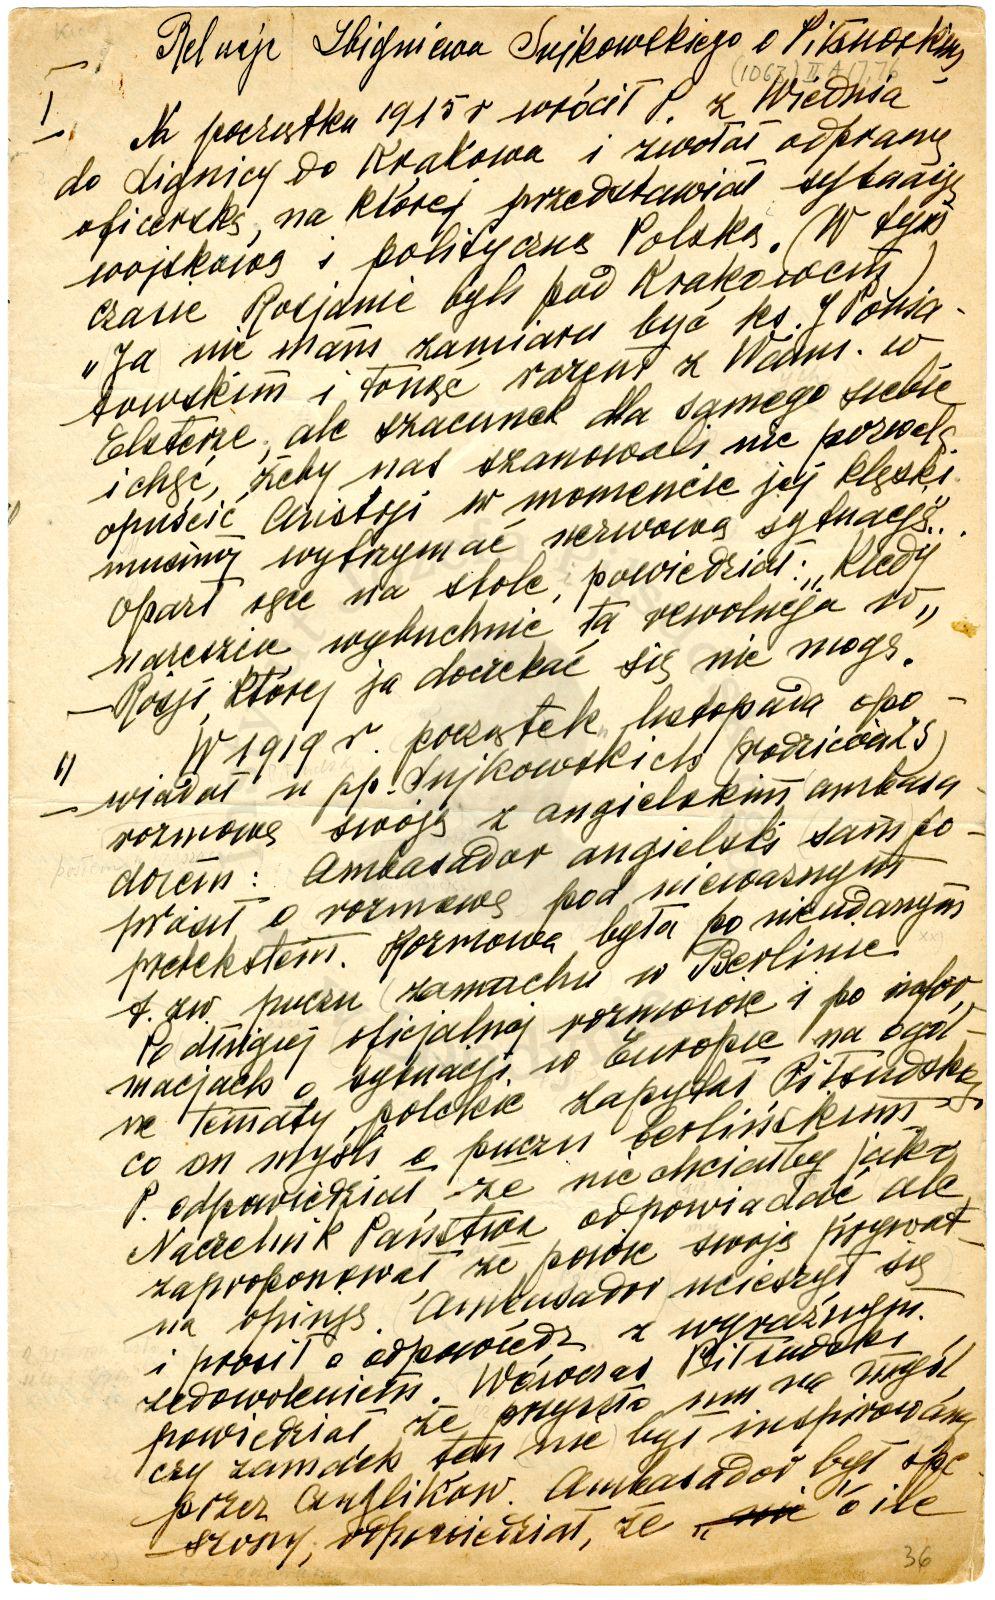 Relacje Zbigniewa Sujkowskiego o Piłsudskim
(1067) II A 17.76
I
Na początku 1915 r wrócił P. z Wiednia
do Lignicy do Krakowa i zwołał odprawę
oficerską, na której przedstawiał sytuację
wojskową i polityczną Polski. (W tym
czasie Rosjanie byli pod Krakowem)
„Ja nie mam zamiaru być ks. J Ponia-
towskim i tonąć razem z Wami w
Elsterze, ale szacunek dla samego siebie
i chęć, żeby nas szanowali nie pozwolą
opuścić Austrji w momencie jej klęski.
musimy wytrzymać nerwową sytuację".
Oparł się na stole, powiedział: „Kiedy
nareszcie wybuchnie ta rewolucja w
Rosji, której ja doczekać się nie mogę."
II
W 1919 r. początek listopada opo-
wiadał u pp. Sujkowskich (rodziców ZS)
rozmowę swoją z angielskim ambasa-
dorem: Ambasador angielski sam po-
prosił o rozmowę pod nieważnym
pretekstem. Rozmowa była po nieudanym
t. zw. puczu (zamachu w Berlinie
Po długiej oficjalnej rozmowie i po infor-
macjach o sytuacji w Europie na ogól-
ne tematy polskie zapytał Piłsudskiego
co on myśli o puczu berlińskim
P. odpowiedział że nie chciałby jako
Naczelnik Państwa odpowiadać ale
zaproponował że powie swoją prywat-
ną opinję. Ambasador ucieszył się
i prosił o odpowiedź z wyraźnym
zadowoleniem. Wówczas Piłsudski
powiedział że przyszło mu na myśl
czy zamach ten nie był inspirowany
przez Anglików. Ambasador był spe-
szony, odpowiedział, że „ o ile
36